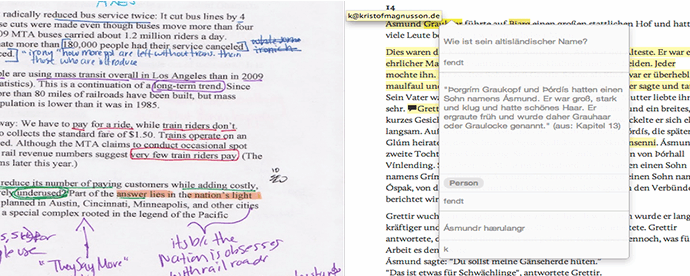 radically reduced bus service twice: It cut bus lines by 4
se cuts were made even though buses move more than four
009 MTA buses carried about 1.2 million riders a day.
ate more than 180,000 people had their service canceled
"irony" how more ppl are left without trans. then
those who are
ple are using mass transit overall in Los Angeles than in 2009
atistics). This is a continuation of a long-term trend. Since
or than 80 miles of railroads have been built, but mass
pulation is lower than it was in 1985.
way: We have to pay for a ride, while train riders don't.
o collects the standard fare of $1.50. Trains operate on an
ed. Although the MTA claims to conduct occasional spot
rail revenue numbers suggest very few train riders pay. (The
ns later this year.)
reduce its number of paying customers while adding costly,
rely underused? Part of the answer lies in the nation's light
planned in Austin, Cincinnati, Minneapolis, and other cities
a special complex rooted in the legend of the Pacific
"They Say Move"
its b/c the
nation is obsesses
with railroads
14
k@kristofmagnusson.de
Ásmund Graukopf führte auf Bjarg einen großen stattlichen Hof und hatt
viele Leute be
Wie ist sein altisländischer Name?
fendt
"Þorgrím Graukopf und Þórdís hatten einen
Sohn namens Ásmund. Er war groß, stark
und klug und hatte schönes Haar. Er
ergraute früh und wurde daher Grauhaar
oder Graulocke genannt." (aus: Kapitel 13)
Person
fendt
Ásmundr hærulangr
k
Dies waren d
Älteste. Er war e
ehrlicher Ma
eiden. Jeder
mochte ihn.
war er überheblich
maulfaul und
er sagte und tat
Sein Vater wa
Mutter liebte ih
sehr. Grett
und ein breites,
kurzes Gesich
langsam. Auß
Þórdís, die später
Glúm heirate
senni. Ásmunds
zweite Tocht
von Þórhall
Vínlending.
einen Sohn
namens Grím
einen Sohn nam
Óspak, von d
den Verbünde
berichtet wir
Grettir wuchs
wurde er lang
kräftiger und
Grettir
antwortete, d
nnoch, was für
Arbeit es den
Ásmund sagte: "Du sollst meine Gänseherde hüten."
"Das ist etwas für Schwächlinge", antwortete Grettir.